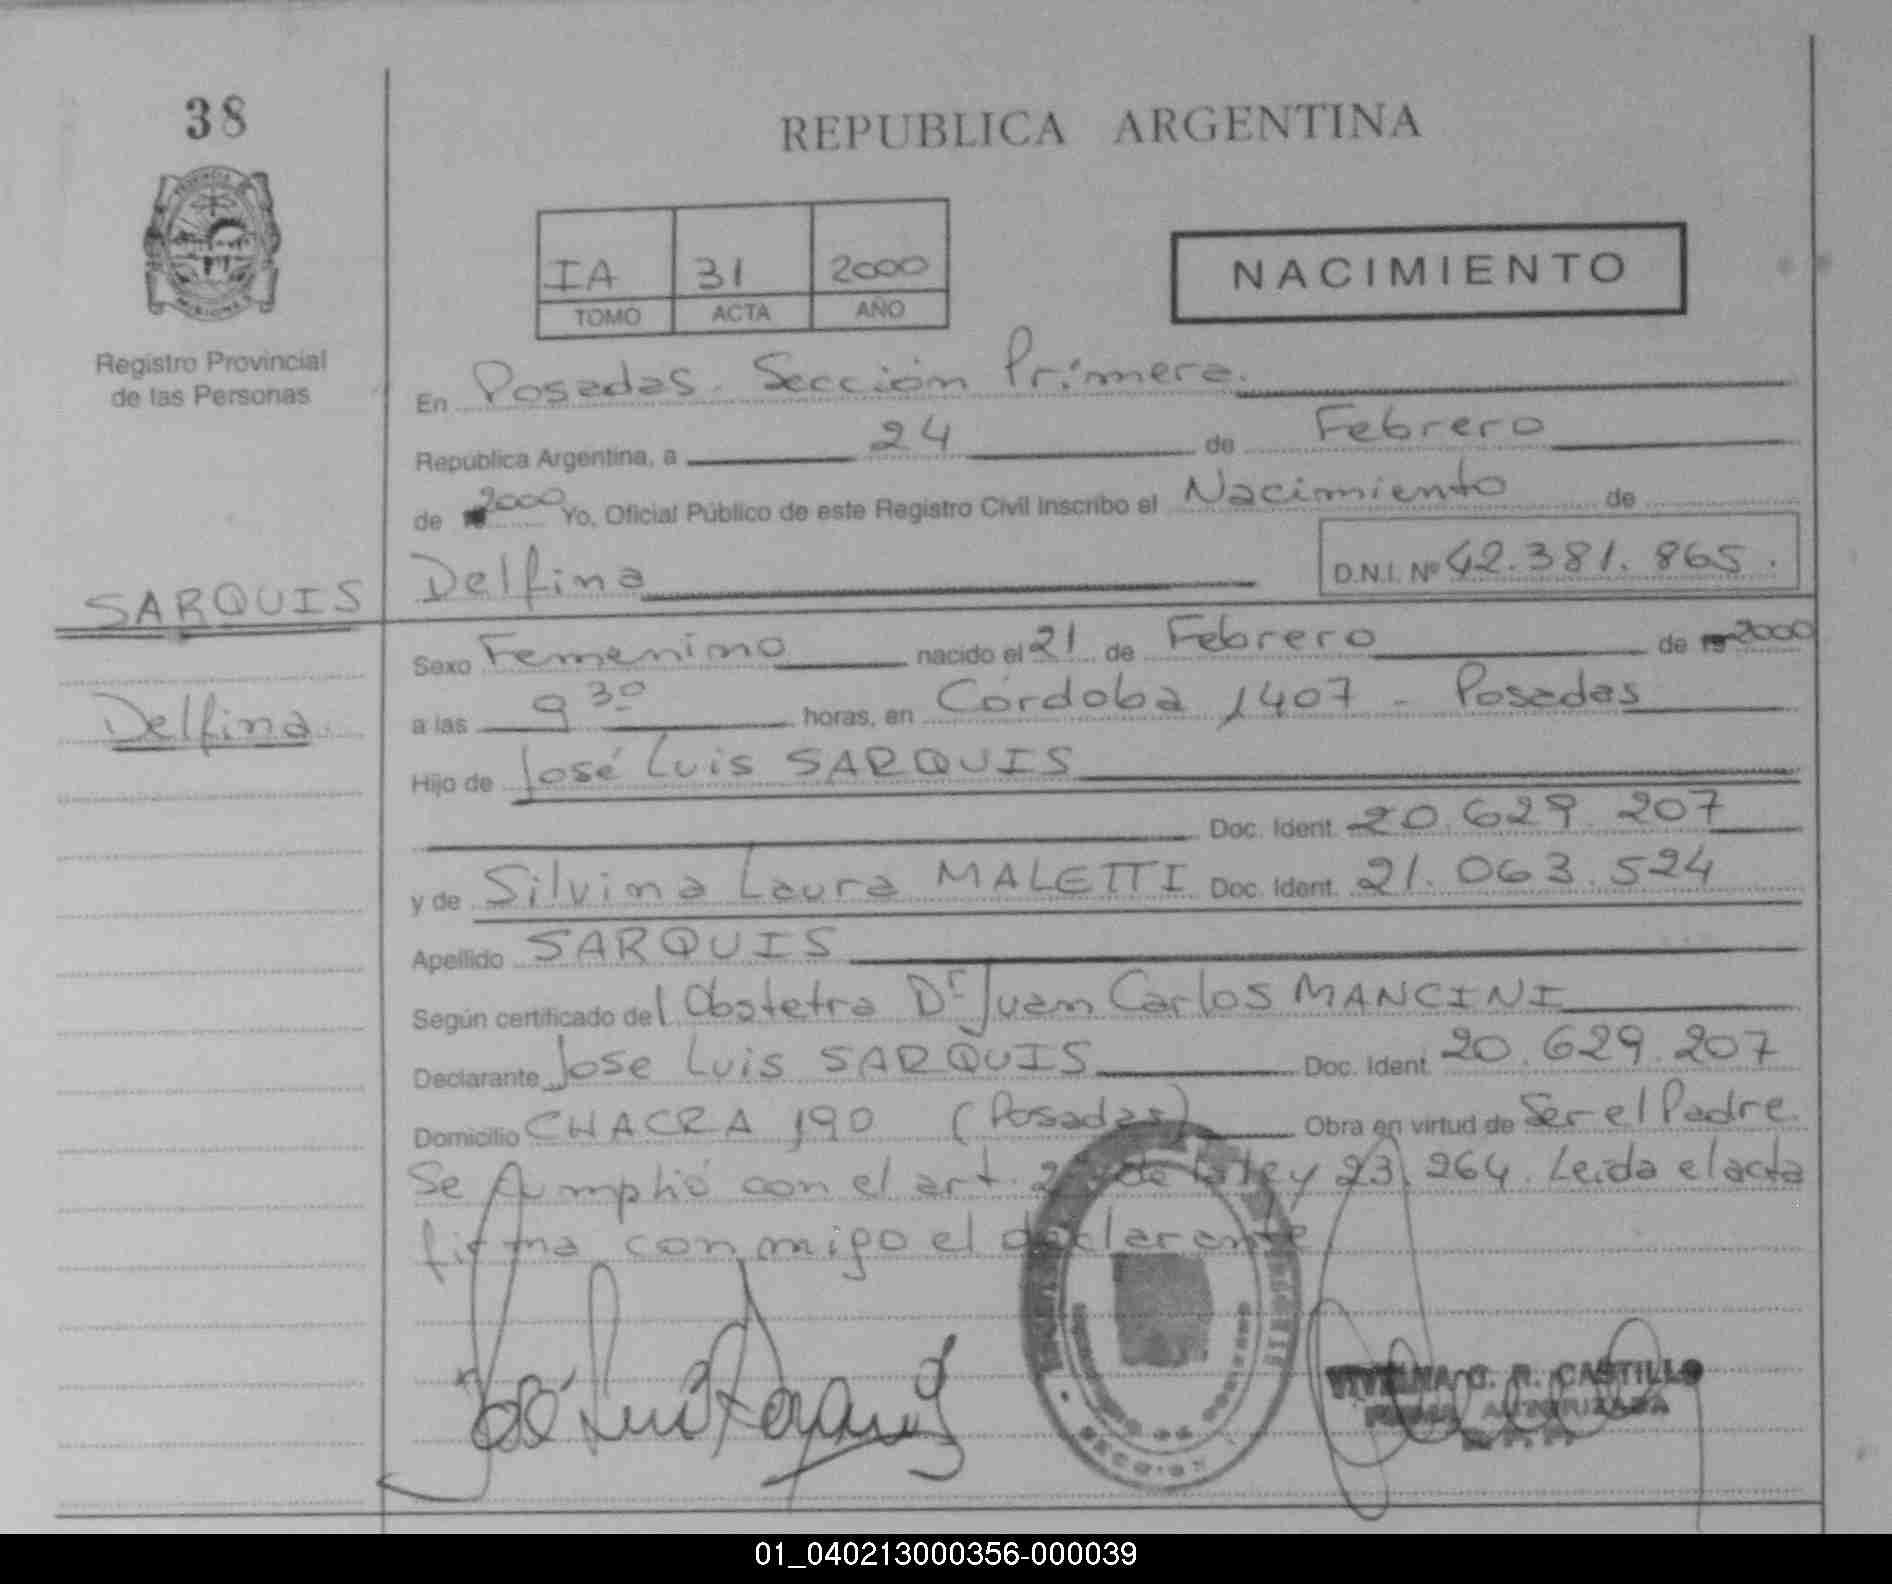 38
REPUBLICA ARGENTINA
IA 31 2000
TOMO ACTA AÑO
NACIMIENTO
Registro Provincial
de las Personas
En Posadas. Sección Primera.
República Argentina, a 24 de Febrero
de 2000 Yo, Oficial Público de este Registro Civil Inscribo el Nacimiento de
Delfina D.N.I. Nº 42.381.865.
SARQUIS
Delfina
Sexo Femenino nacido el 21 de Febrero de 2000
a las 9 30 horas, en Córdoba 1407 - Posadas
Hijo de José Luis SARQUIS
Doc. Ident. 20.629.207
y de Silvina Laura MALETTI Doc. Ident. 21.063.524
Apellido SARQUIS
Según certificado del Obstetra Dr Juan Carlos MANCINI
Declarante Jose Luis SARQUIS Doc. Ident. 20.629.207
Domicilio CHACRA 190 (Posadas) Obra en virtud de Ser el Padre.
Se cumplió con el art. de la ley 23.264. Leida el acta
firma conmigo el declarante
José Luis Sarquis
G. R. CASTILLO
FIRMA AUTORIZADA
01_040213000356-000039